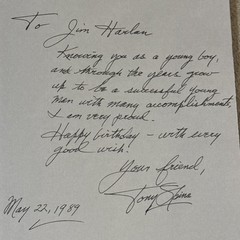 To Jim Harlan
Knowing you as a young boy,
and through the years grow
up to be a successful young
man with many accomplishments,
I am very proud.
Happy birthday - with every
good wish.
Your friend,
Tony Spina
May 22, 1989